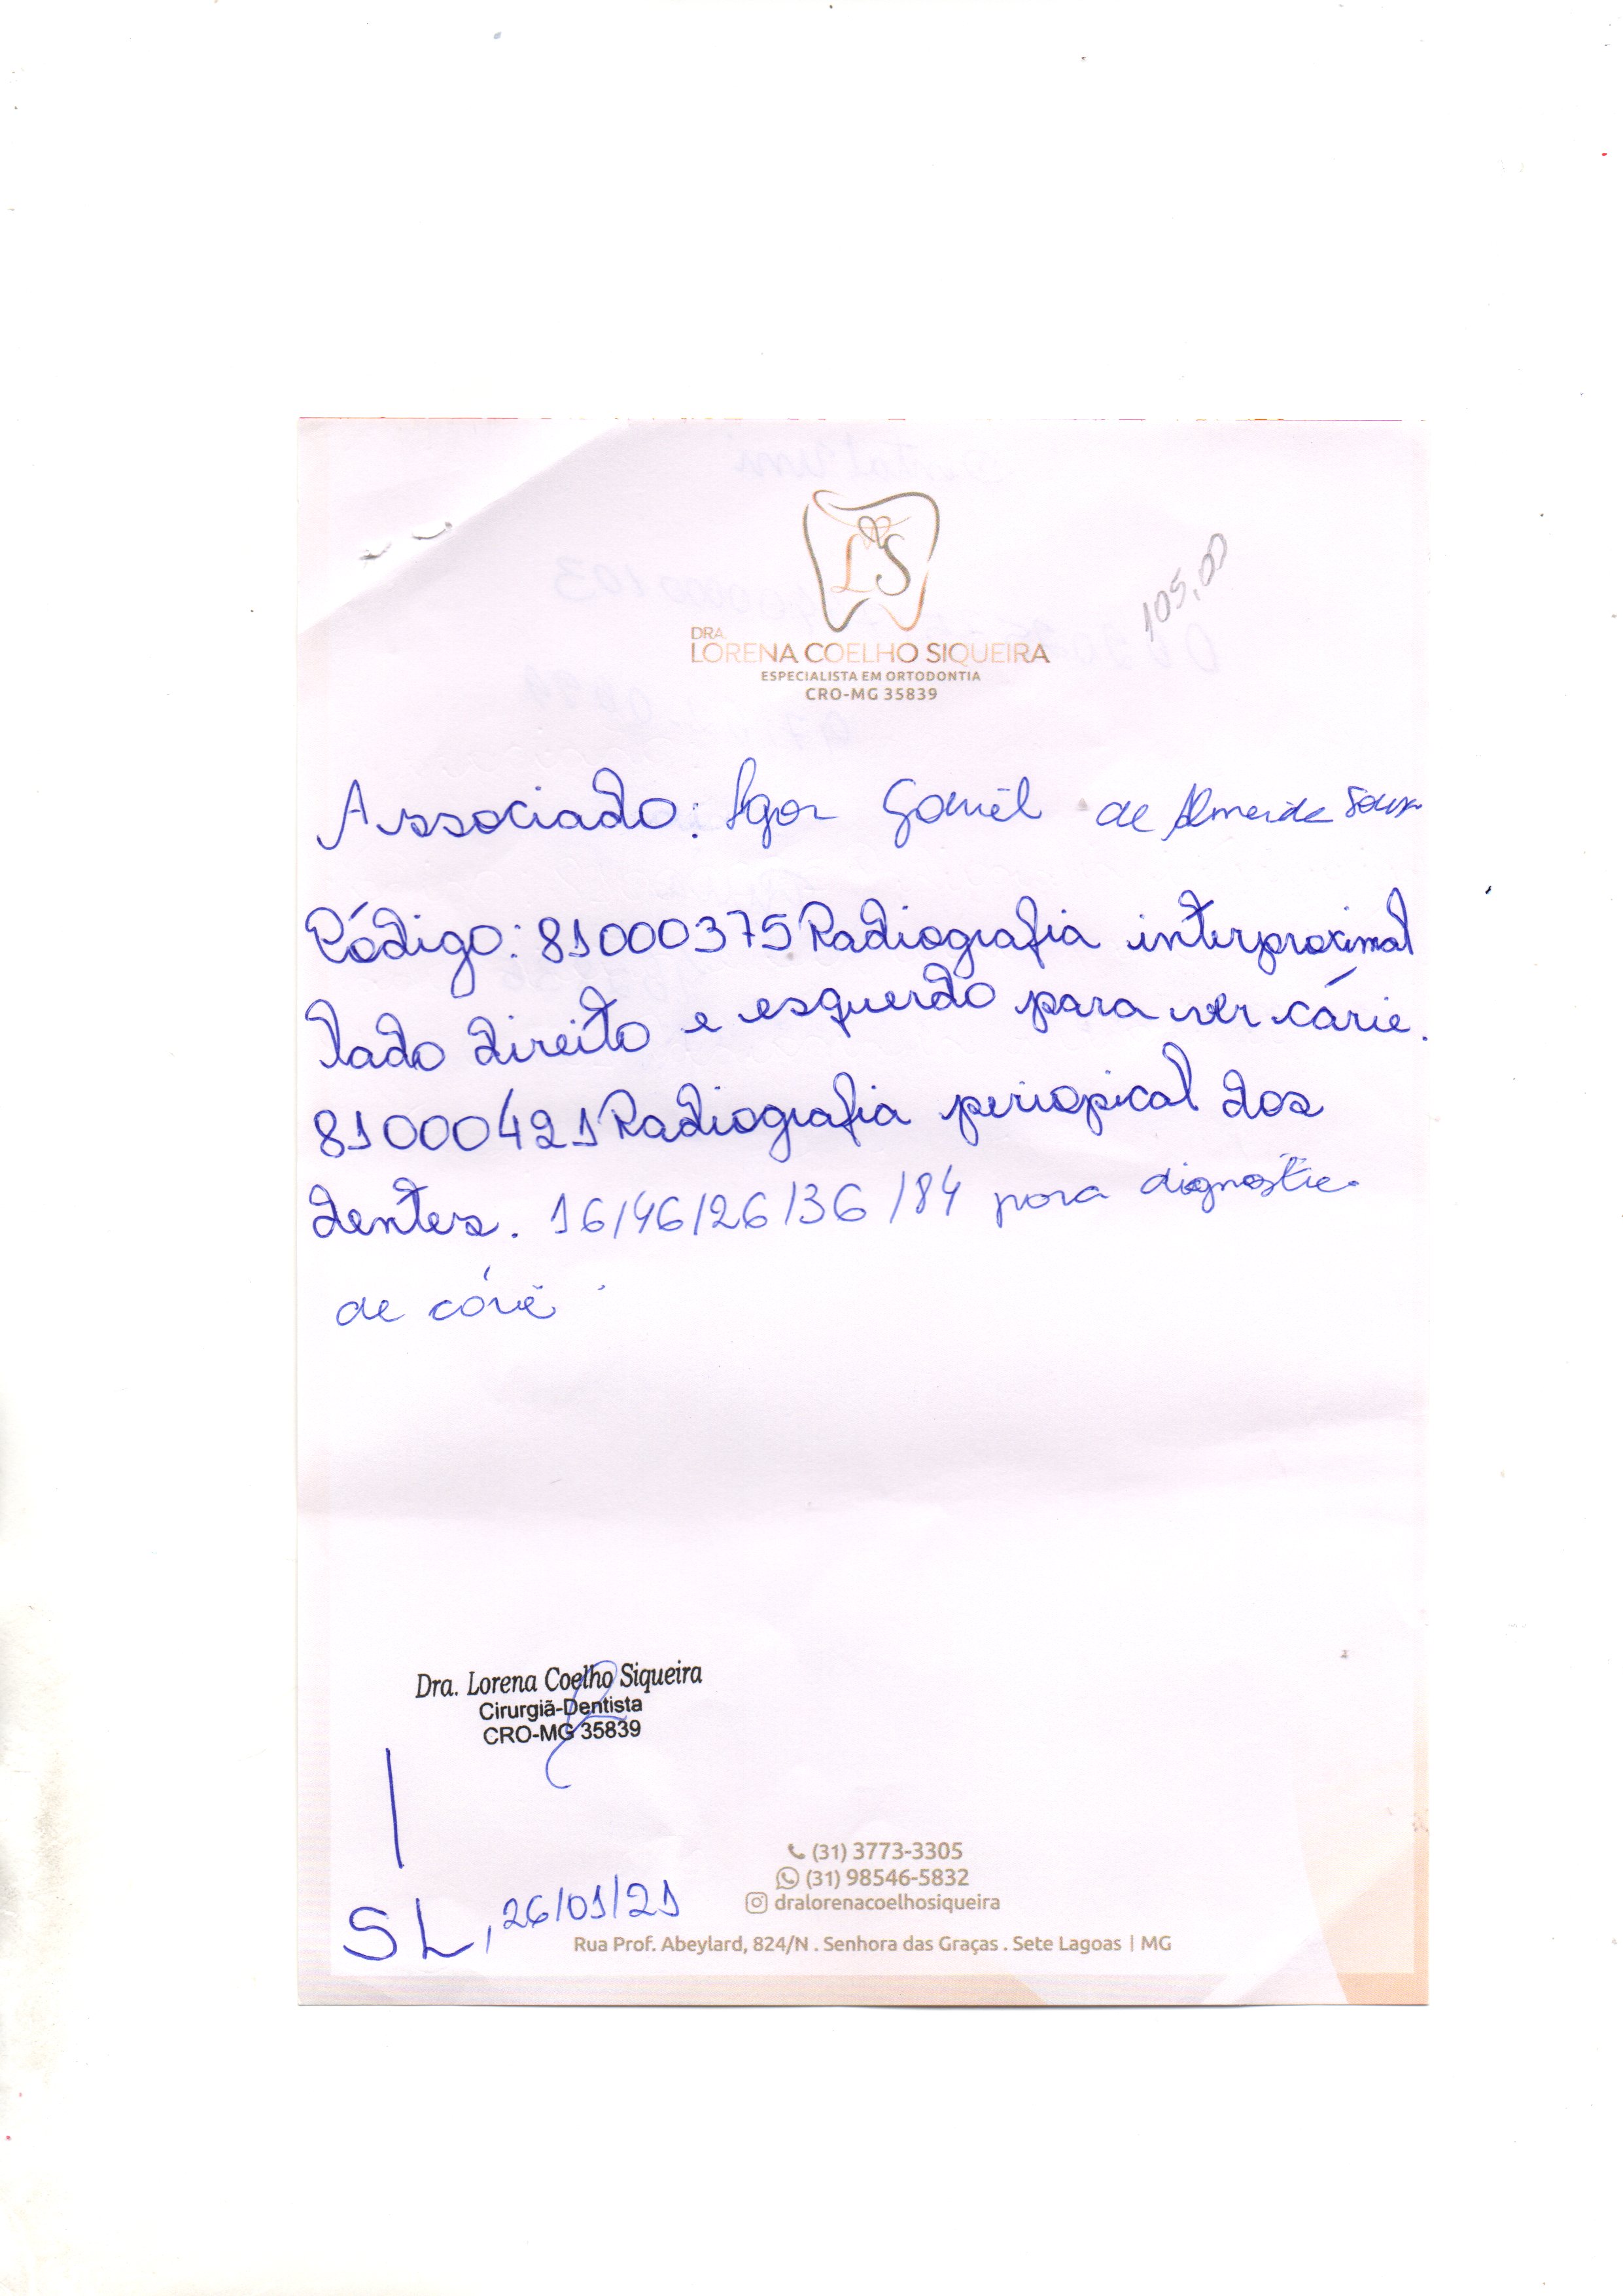 LS
DRA.
LORENA COELHO SIQUEIRA
ESPECIALISTA EM ORTODONTIA
CRO-MG 35839
105,00
Associado: Igor Gabriel de Almeida Sousa
Código: 81000375 Radiografia interproximal
lado direito e esquerdo para ver cárie.
81000421 Radiografia periapical dos
dentes. 16/46/26/36/84 para diagnostico
de cárie
Dra. Lorena Coelho Siqueira
Cirurgiã-Dentista
CRO-MG 35839
SL, 26/01/21
(31) 3773-3305
(31) 98546-5832
dralorenacoelhosiqueira
Rua Prof. Abeylard, 824/N . Senhora das Graças . Sete Lagoas | MG